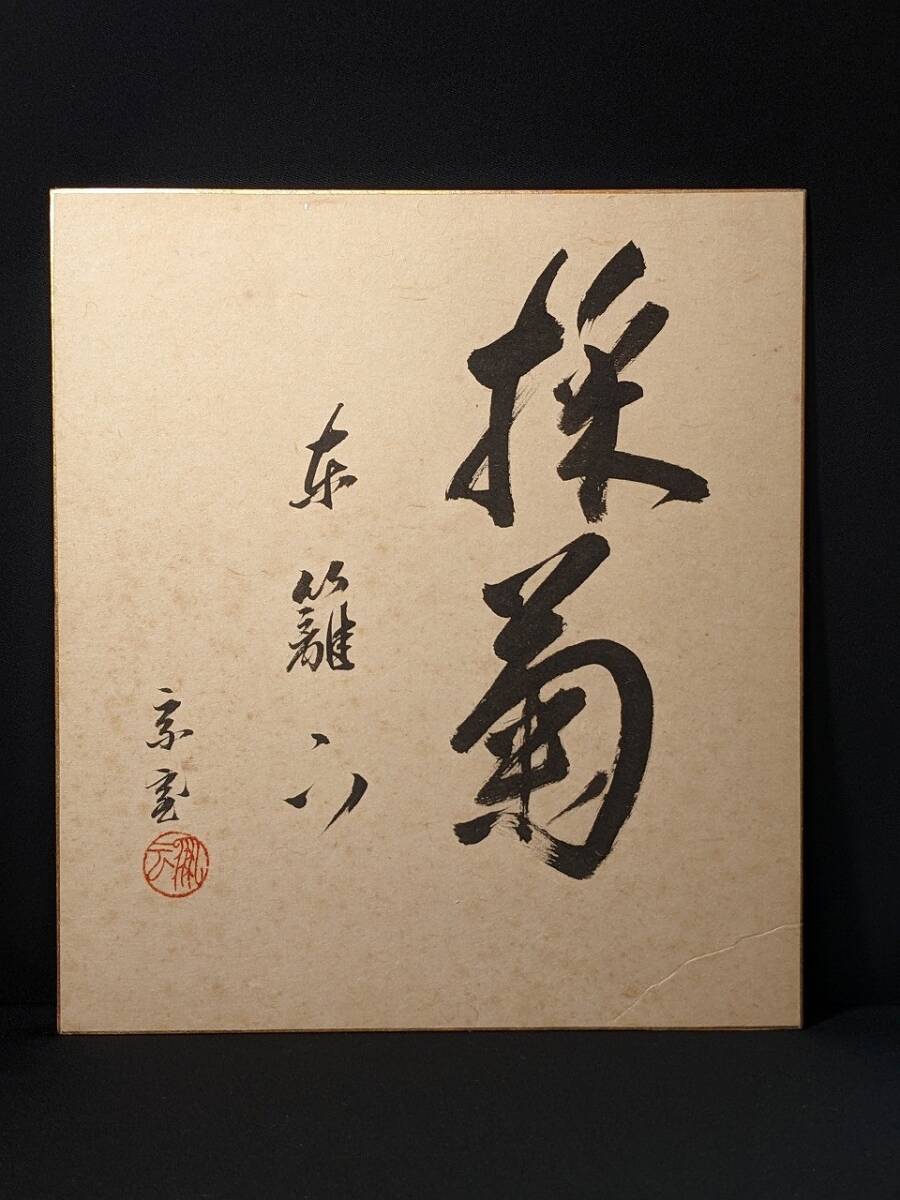 採菊
東籬下
宗室